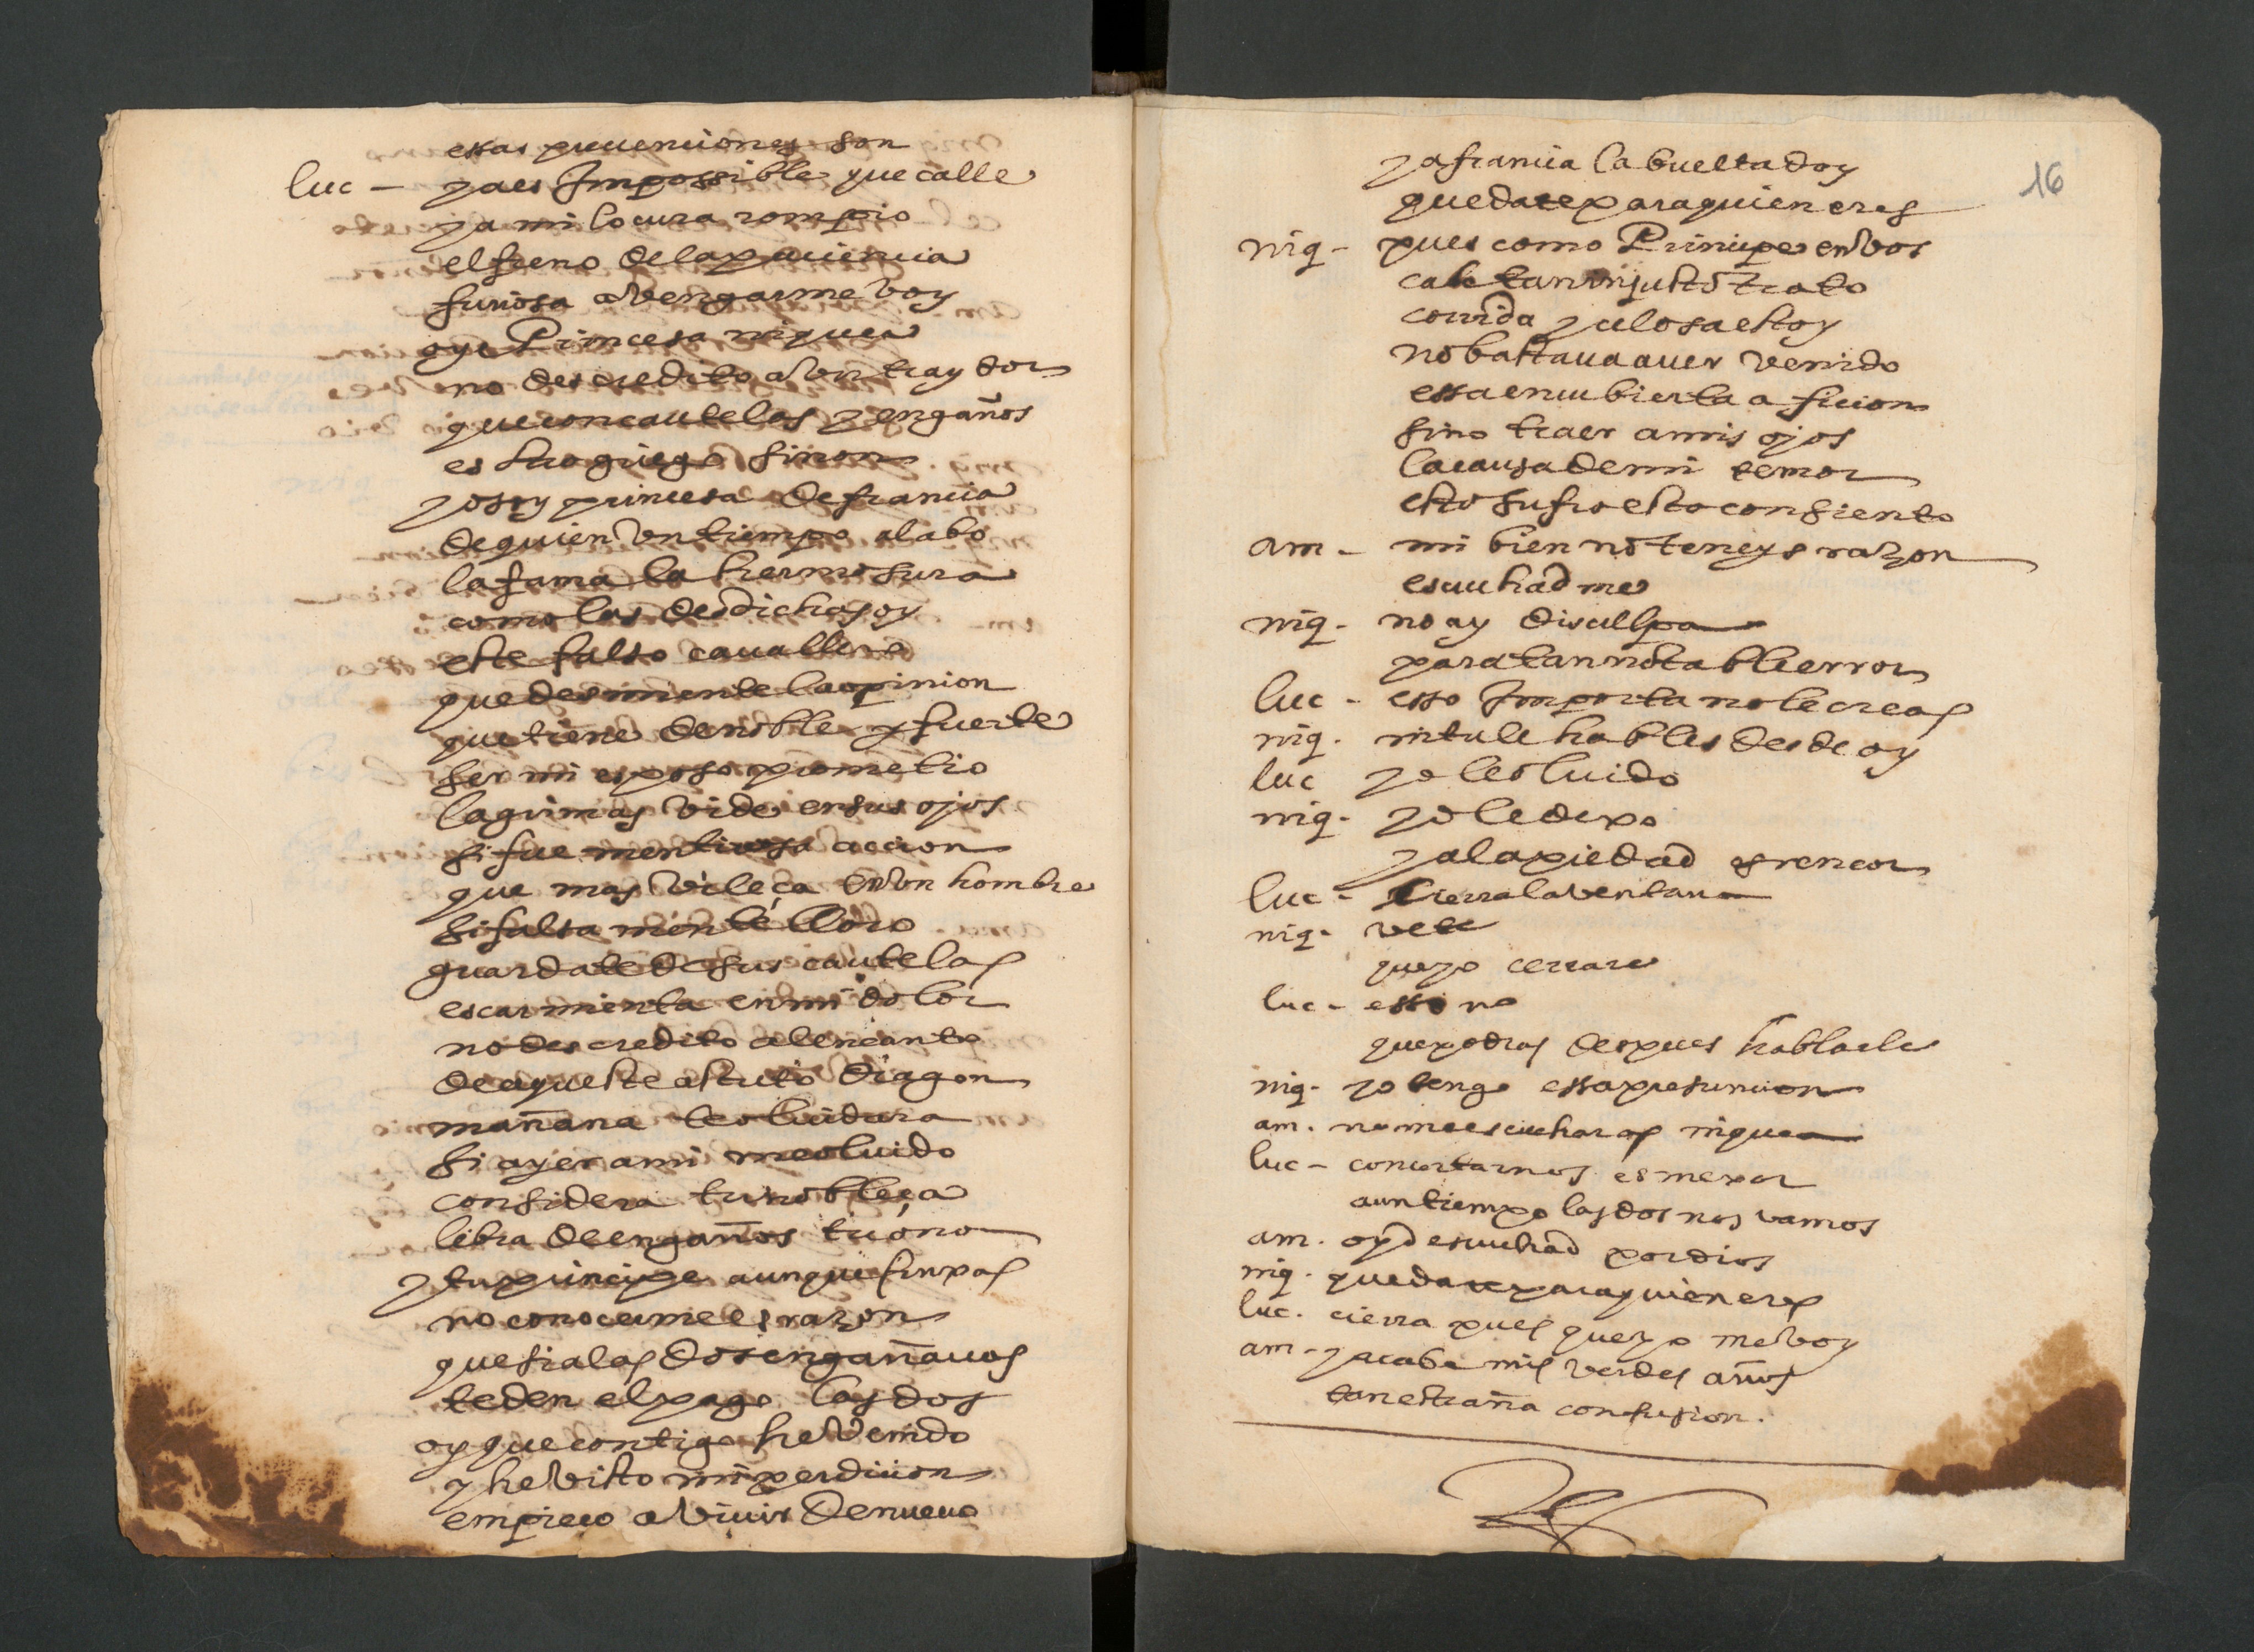 essas preuenciones son
luc - ya es Impossible que calle
ya mi locura rompio
el freno de la paciencia
furiosa a Vengarme Voy
oye Princesa niquea
no des credito a Vn traydor
que con cautelas y engaños
es otro griego sinon
yo soy princesa de francia
de quien Vn tiempo alabo
la fama la hermosura
como las desdichas oy
este falso cauallero
que desmiente la opinion
que tiene de noble y fuerte
ser mi esposo prometio
lagrimas Vide en sus ojos
si fue mentirosa accion
que mas Vileça en Vn hombre
si falsamente lloro
guardate de sus cautelas
escarmienta en mi dolor
no des credito al encanto
de aqueste astuto dragon
mañana te oluidara
si ayer a mi me oluido
considera tu nobleça
libra de engaños tu onor
y tu principe aunque sin pas
no conocerme es razon
que si a las dos engañauas
te den el pago las dos
oy que contigo he Venido
y he Visto mi perdicion
empieço a Viuir de nueuo
16
y a francia la buelta doy
quedate para quien eres
niq - pues como Principe en Vos
cabe tan injusto trato
corrida y celosa estoy
no bastaua auer Venido
essa encubierta aficion
sino traer a mis ojos
la causa de mi temor
esto sufro esto consiento
am - mi bien no teneys razon
escuchadme
niq - no ay disculpa
para tan notable error
luc - esso Importa no le creas
niq - ni tu le hables desde oy
luc yo le oluido
niq - yo le dexo
y a la piedad es rencor
luc - Cierra la Ventana
niq - vete
que yo cerrare
luc - esso no
que podras despues hablarle
niq - yo tengo essa presuncion
am - no me escucharas niquea
luc - concertarnos es mexor
a un tiempo las dos nos vamos
am - oyd escuchad por dios
niq - quedate para quien eres
luc - cierra pues que yo me Voy
am - y acabe mis verdes años
tan estraña confusion.